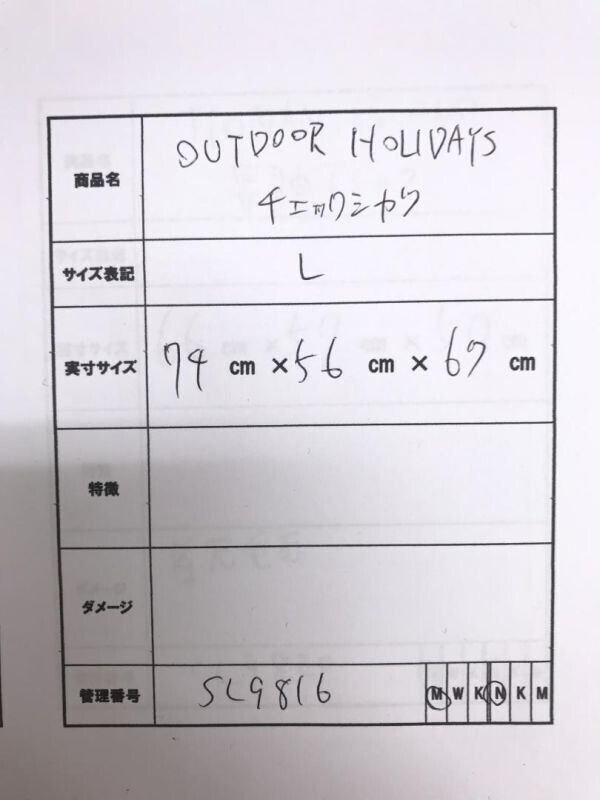 商品名 OUTDOOR HOLIDAYS
チェックシャツ
サイズ表記 L
実寸サイズ 74 cm ×56 cm × 67 cm
特徴
ダメージ
管理番号 SL9816 M W K N K M